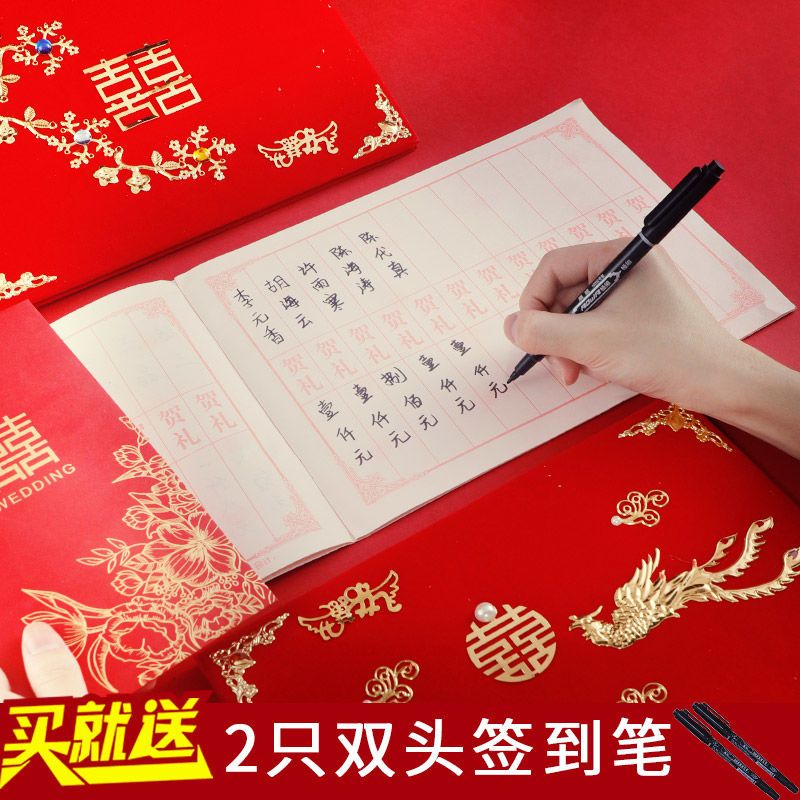 囍
李元香
胡海云
许雨寒
陈海涛
陈代真
贺礼
贺礼
贺礼
贺礼
贺礼
贺礼
贺礼
贺
贺
贺
贺
贺
壹仟元
壹仟元
捌佰元
壹仟元
壹仟元
贺礼
贺礼
囍
WEDDING
囍
买就送
2只双头签到笔